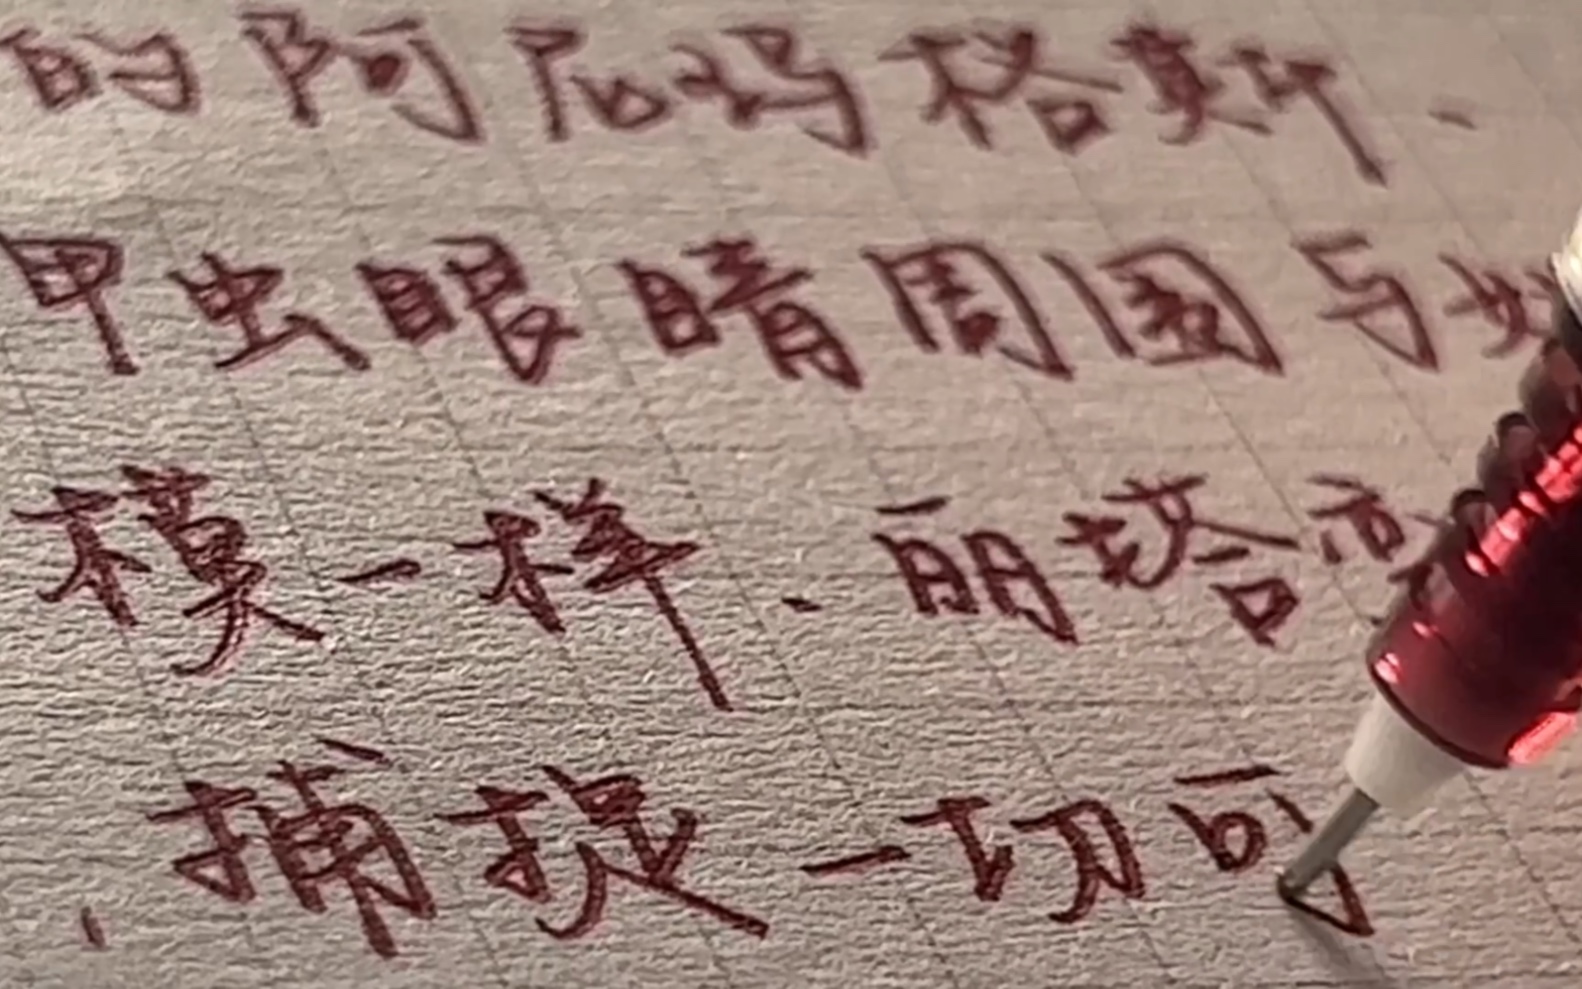 的阿尼玛格斯、
甲虫眼睛周围与
模一样、丽塔
捕捉一切可